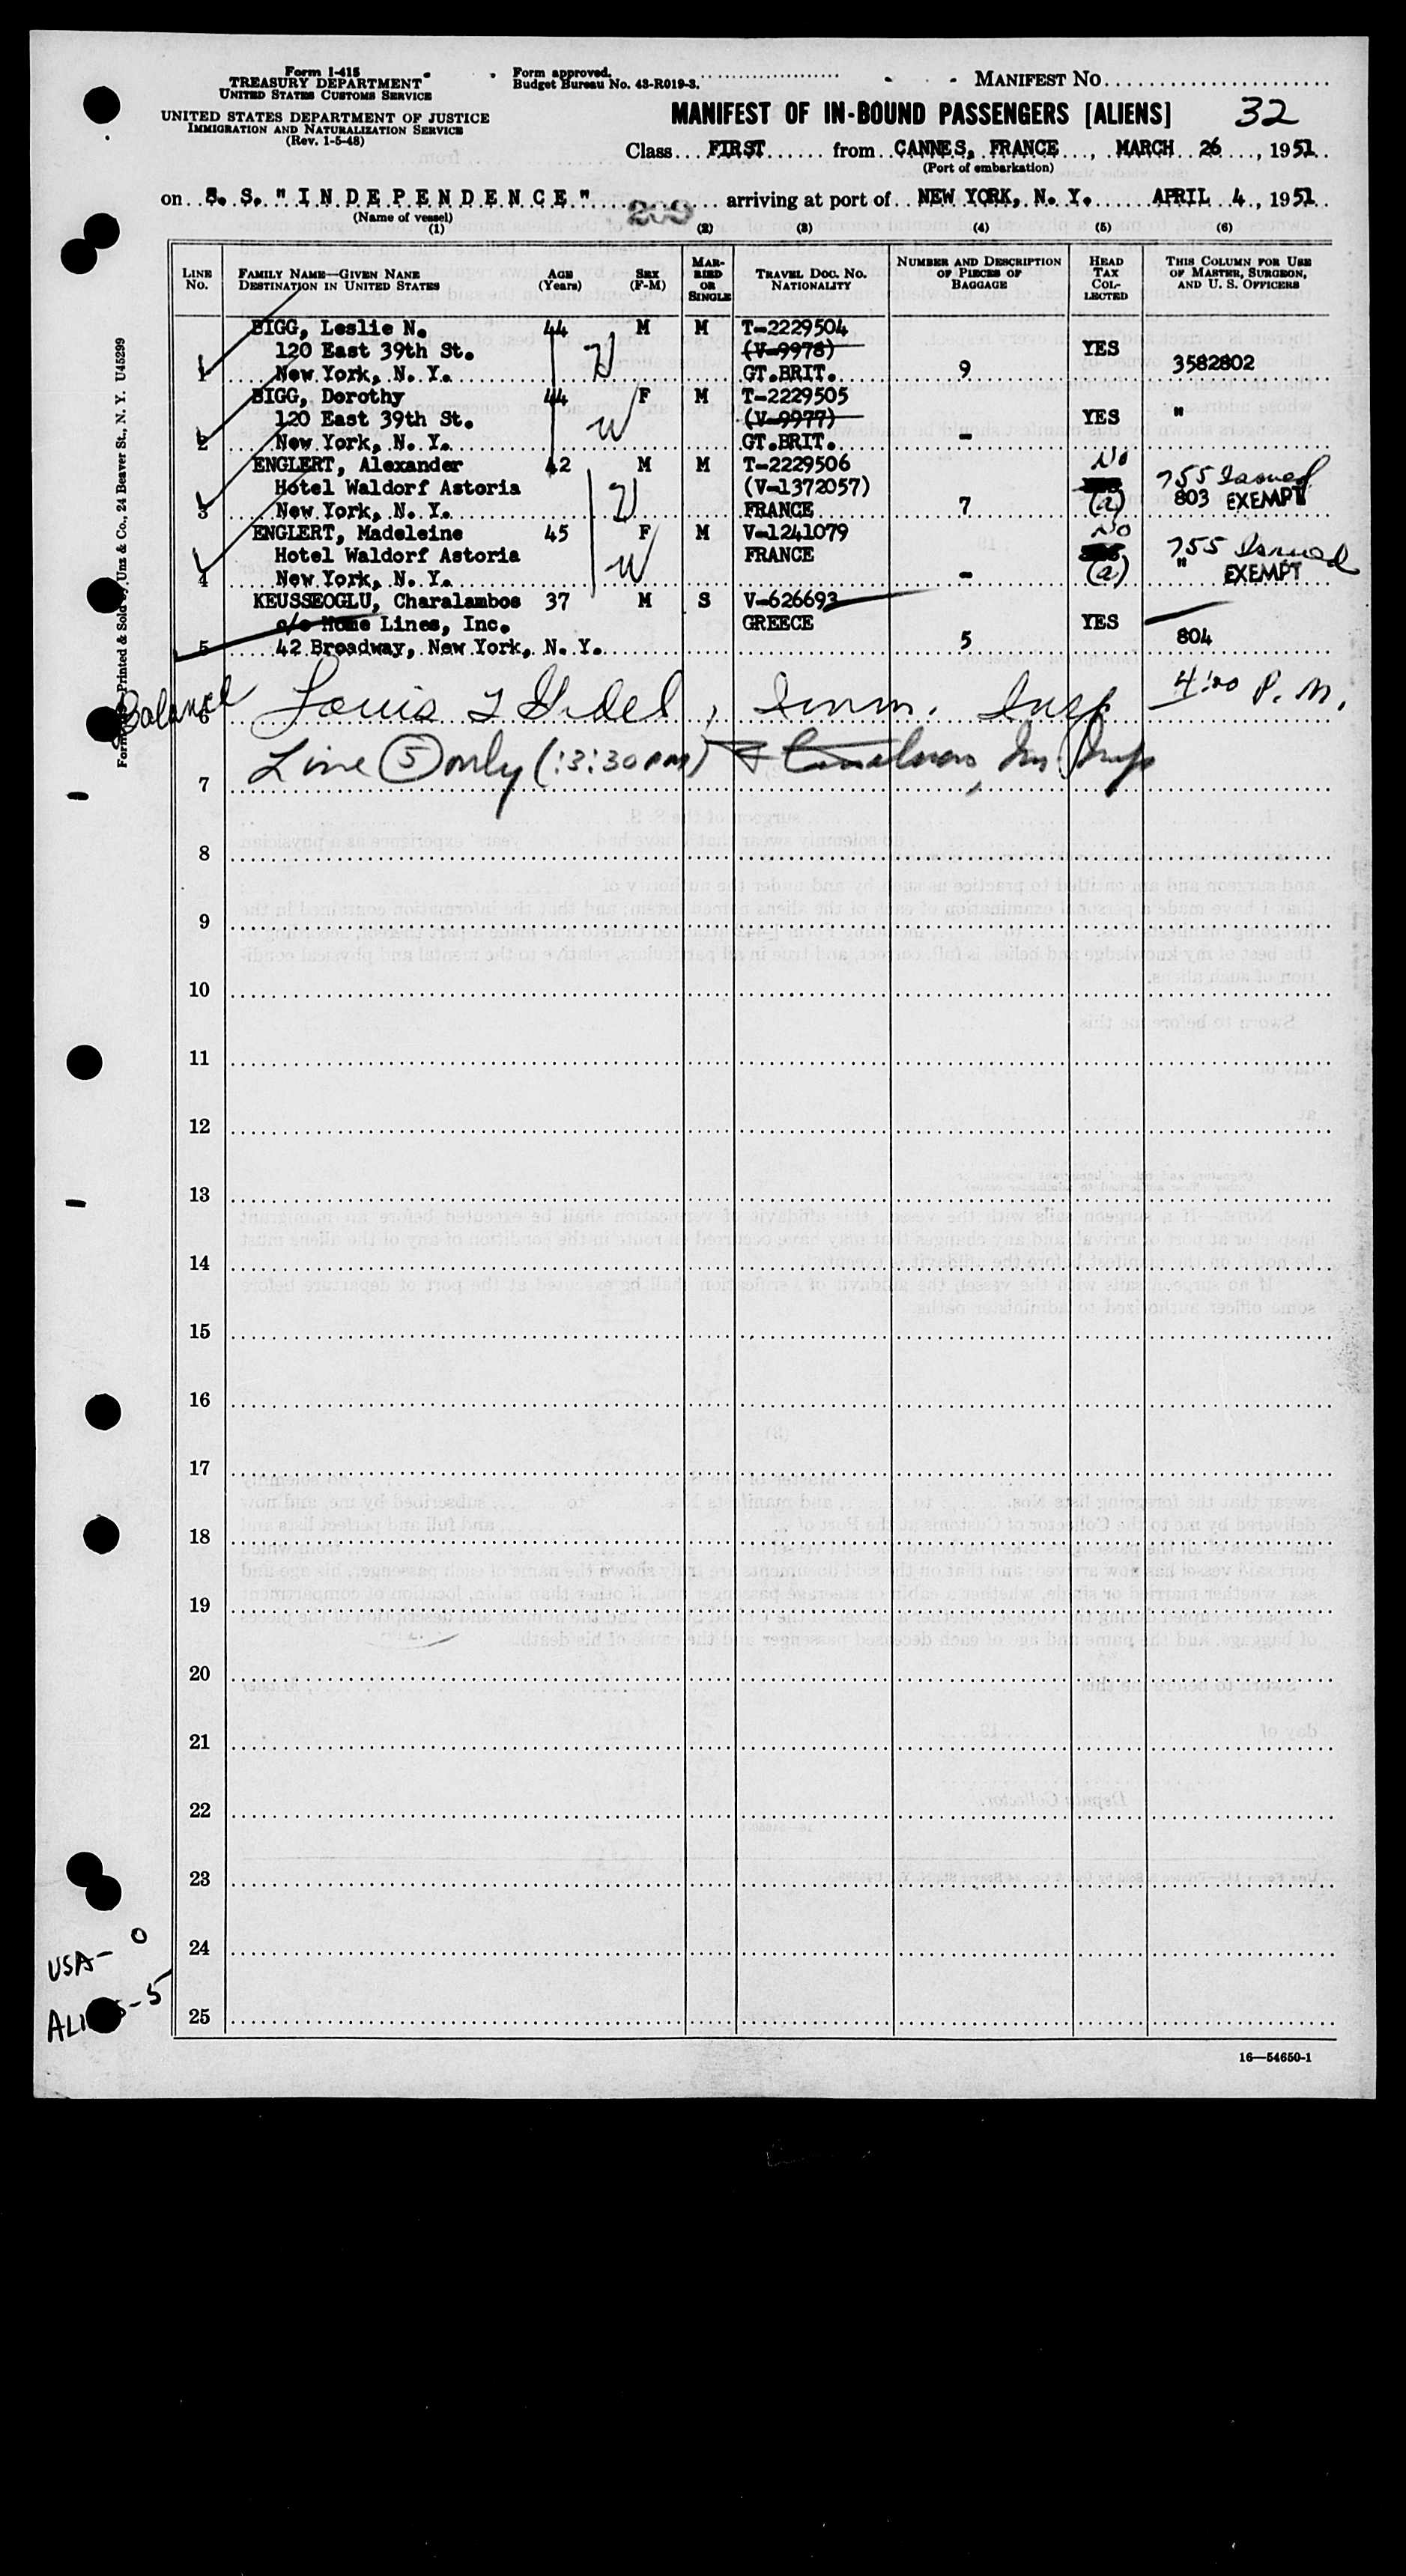 Form I-415
TREASURY DEPARTMENT
UNITED STATES CUSTOMS SERVICE
UNITED STATES DEPARTMENT OF JUSTICE
IMMIGRATION AND NATURALIZATION SERVICE
(Rev. 1-5-48)
Form approved.
Budget Bureau No. 43-R019-3.
MANIFEST NO.
MANIFEST OF IN-BOUND PASSENGERS [ALIENS] 32
Class FIRST from CANNES, FRANCE, MARCH 26, 1951
(Port of embarkation)
on S. S. "INDEPENDENCE" 209 arriving at port of NEW YORK, N. Y. APRIL 4, 1951
(Name of vessel)
(1) (2) (3) (4) (5) (6)
LINE No. FAMILY NAME—GIVEN NANE DESTINATION IN UNITED STATES AGE (Years) SEX (F-M) MARRIED OR SINGLE TRAVEL DOC. NO. NATIONALITY NUMBER AND DESCRIPTION OF PIECES OF BAGGAGE HEAD TAX COLLECTED THIS COLUMN FOR USE OF MASTER, SURGEON, AND U. S. OFFICERS
BIGG, Leslie N. 44 M M T-2229504
120 East 39th St. (V-9978) YES
1 New York, N. Y. GT.BRIT. 9 3582802
BIGG, Dorothy 44 F M T-2229505
120 East 39th St. (V-9977) YES "
2 New York, N. Y. GT.BRIT. -
ENGLERT, Alexander 42 M M T-2229506 No
Hotel Waldorf Astoria (V-1372057) 755 Issued
3 New York, N. Y. FRANCE 7 (a) 803 EXEMPT
ENGLERT, Madeleine 45 F M V-1241079 No
Hotel Waldorf Astoria FRANCE 755 Issued
4 New York, N. Y. - (a) " EXEMPT
KEUSSEOGLU, Charalambos 37 M S V-626693
c/o Home Lines, Inc. GREECE YES
5 42 Broadway, New York, N. Y. 5 804
Balance 6 Louis , Imm. Insp 4:00 P. M.
7 Line 5 only (3:30 PM)
8
9
10
11
12
13
14
15
16
17
18
19
20
21
22
23
24
25
USA- 0
ALIENS-5
16—54650-1
Printed & Sold by Unz & Co., 24 Beaver St., N. Y. U45299